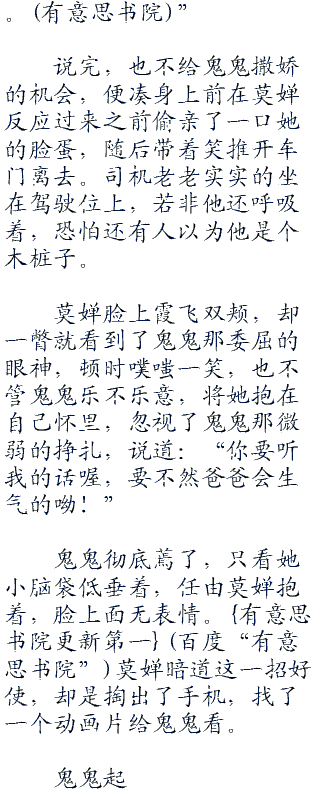 。(有意思书院)”
说完，也不给鬼鬼撒娇
的机会，便凑身上前在莫婵
反应过来之前偷亲了一口她
的脸蛋，随后带着笑推开车
门离去。司机老老实实的坐
在驾驶位上，若非他还呼吸
着，恐怕还有人以为他是个
木桩子。
莫婵脸上霞飞双颊，却
一瞥就看到了鬼鬼那委屈的
眼神，顿时噗嗤一笑，也不
管鬼鬼乐不乐意，将她抱在
自己怀里，忽视了鬼鬼那微
弱的挣扎，说道：“你要听
我的话喔，要不然爸爸会生
气的呦！”
鬼鬼彻底蔫了，只看她
小脑袋低垂着，任由莫婵抱
着，脸上面无表情。{有意思
书院更新第一}(百度“有意
思书院”)莫婵暗道这一招好
使，却是掏出了手机，找了
一个动画片给鬼鬼看。
鬼鬼起